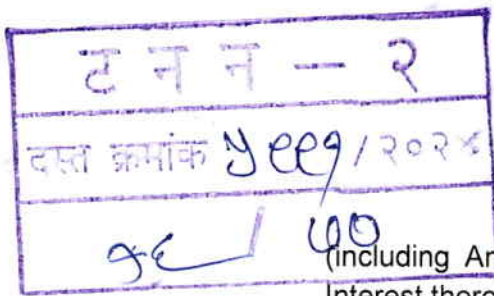 ट न न — २
दस्त क्रमांक ५९९१/२०२४
१८/५०
(including Ar
Interest there